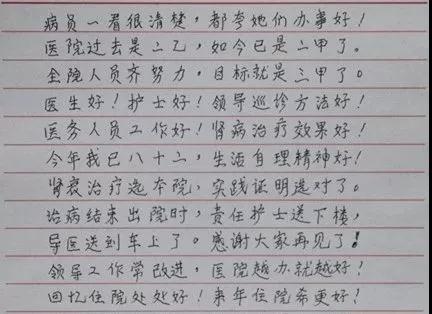 病员一看很清楚,都夸她们办事好!
医院过去是二乙,如今已是二甲了。
全院人员齐努力,目标就是三甲了。
医生好!护士好!领导巡诊方法好!
医务人员工作好!肾病治疗效果好!
今年我已八十二,生活自理精神好!
肾衰治疗选本院,实践证明选对了。
治病结束出院时,责任护士送下楼,
导医送到车上了。感谢大家再见了!
领导工作常改进,医院越办就越好!
回忆住院处处好!来年住院希更好?